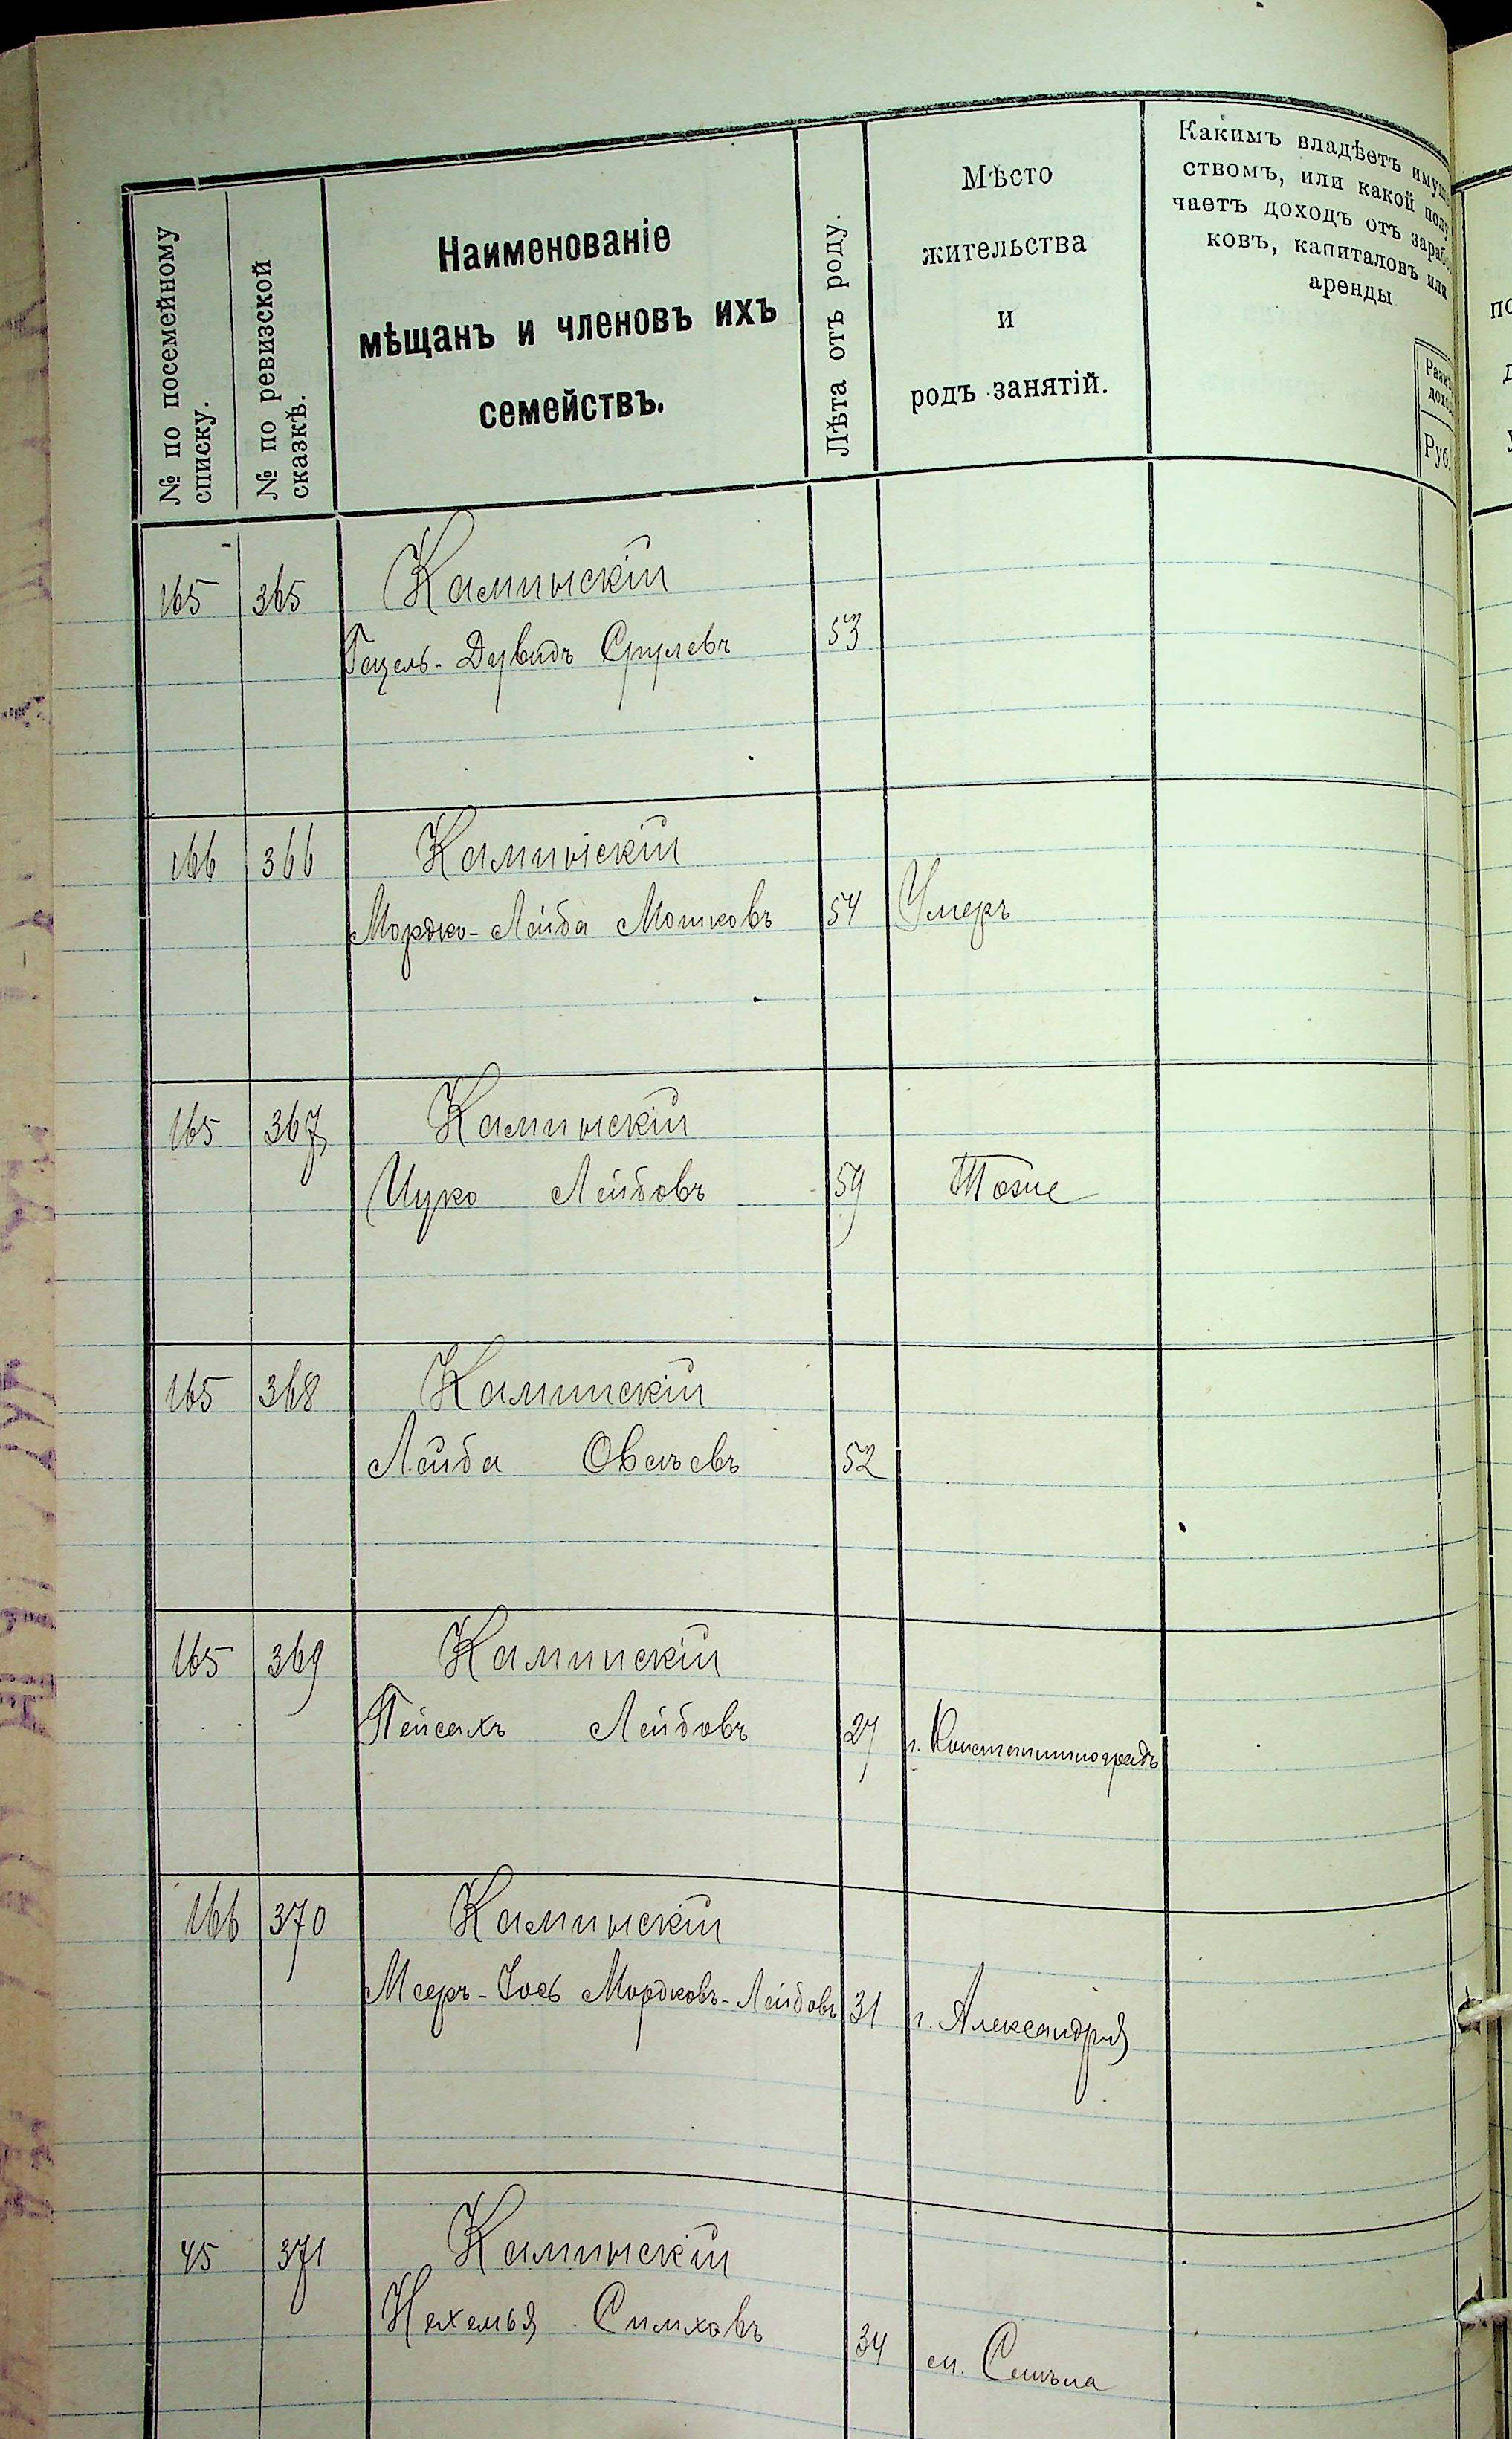 № по посемейному
списку.
№ по ревизской
сказкѣ.
Наименованіе
мѣщанъ и членовъ ихъ
семействъ.
Лѣта отъ роду.
Мѣсто
жительства
и
родъ занятій.
Какимъ владѣетъ имущ
ствомъ, или какой полу
чаетъ доходъ отъ зараб
ковъ, капиталовъ или
аренды
Руб.
165 365 Каминскій
Гецель-Дувидъ Срулевъ 53
166 366 Каминскій
Мордко-Лейба Мошковъ 54 Умеръ
165 367 Каминскій
Ицко Лейбовъ 59 Тоже
165 368 Каминскій
Лейба Овсѣевъ 52
165 369 Каминскій
Пейсахъ Лейбовъ 27 г. Константиноградъ
166 370 Каминскій
Мееръ-Іось Мордковъ-Лейбовъ 31 г. Александрія
45 371 Каминскій
Нехемья Симховъ 34 ст.